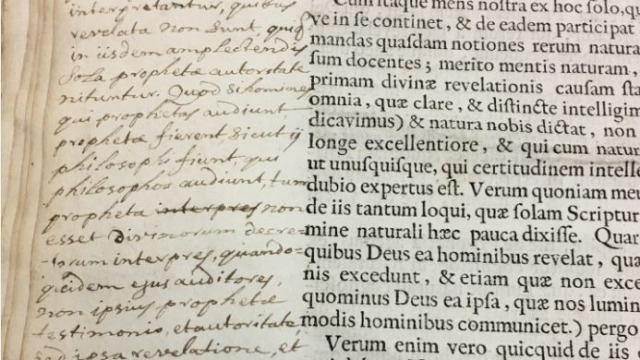 interpretantur, quibus
revelata non sunt, quiq
in iisdem amplectendis
sola prophetæ autoritate
nituntur. Quod si homines
qui prophetas audiunt
prophetæ fierent, sicut ij
philosophi fiunt, qui
philosophos audiunt, tum
propheta interpres non
esset Divinorum decre-
torum interpres, quando-
quidem ejus auditores,
non ipsius prophetæ
testimonio, et autoritate,
sed ipsa revelatione, et
Cum itaque mens nostra ex hoc solo, qu
ve in se continet, & de eadem participat
mandas quasdam notiones rerum natura
sum docentes; merito mentis naturam,
primam divinæ revelationis causam sta
omnia, quæ clare, & distincte intelligim
dicavimus) & natura nobis dictat, non
longe excellentiore, & qui cum natur
ut unusquisque, qui certitudinem intelle
dubio expertus est. Verum quoniam me
de iis tantum loqui, quæ solam Scriptur
mine naturali hæc pauca dixisse. Quar
quibus Deus ea hominibus revelat, quæ
nis excedunt, & etiam quæ non exce
quominus Deus ea ipsa, quæ nos lumin
modis hominibus communicet.) pergo
Verum enim vero quicquid de iis